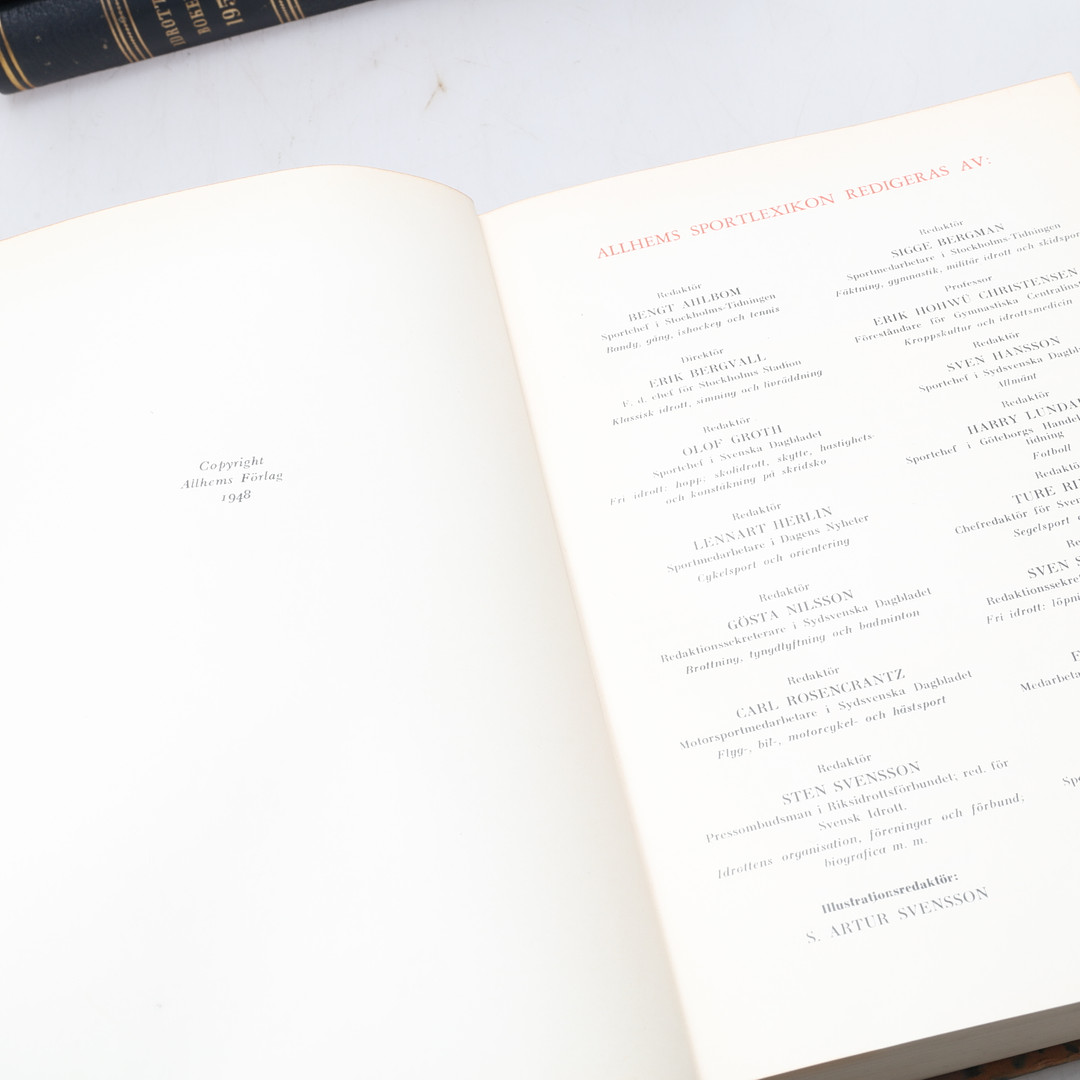 IDROTT
BOKE
195
Copyright
Allhems Förlag
1948
ALLHEMS SPORTLEXIKON REDIGERAS AV:
Redaktör
BENGT AHLBOM
Sportchef i Stockholms-Tidningen
Bandy, gång, ishockey och tennis
Direktör
ERIK BERGVALL
F. d. chef för Stockholms Stadion
Klassisk idrott, simning och livräddning
Redaktör
OLOF GROTH
Sportchef i Svenska Dagbladet
Fri idrott: hopp; skolidrott, skytte, hastighets-
och konståkning på skridsko
Redaktör
LENNART HERLIN
Sportmedarbetare i Dagens Nyheter
Cykelsport och orientering
Redaktör
GÖSTA NILSSON
Redaktionssekreterare i Sydsvenska Dagbladet
Brottning, tyngdlyftning och badminton
Redaktör
CARL ROSENCRANTZ
Motorsportmedarbetare i Sydsvenska Dagbladet
Flyg-, bil-, motorcykel- och hästsport
Redaktör
STEN SVENSSON
Pressombudsman i Riksidrottsförbundet; red. för
Svensk Idrott.
Idrottens organisation, föreningar och förbund,
biografica m. m.
Redaktör
SIGGE BERGMAN
Sportmedarbetare i Stockholms-Tidningen
Fäktning, gymnastik, militär idrott och skidsport
Professor
ERIK HOHWÜ CHRISTENSEN
Föreståndare för Gymnastiska Centralins
Kroppskultur och idrottsmedicin
Redaktör
SVEN HANSSON
Sportchef i Sydsvenska Dagbl
Allmänt
Redaktör
HARRY LUNDA
Sportchef i Göteborgs Handel
tidning
Fotboll
Redaktö
TURE RI
Chefredaktör för Sven
Segelsport
Re
SVEN S
Redaktionssekre
Fri idrott: löpni
E
Medarbeta
Spo
Illustrationsredaktör:
S. ARTUR SVENSSON